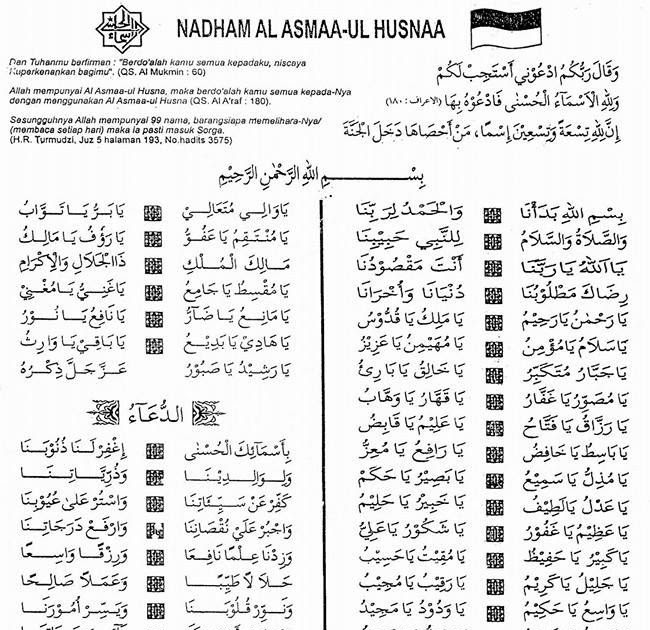 NADHAM AL ASMAA-UL HUSNAA
Dan Tuhanmu berfirman : "Berdo'alah kamu semua kepadaku, niscaya
Kuperkenankan bagimu". (QS. Al Mukmin : 60)
Allah mempunyai Al Asmaa-ul Husna, maka berdo'alah kamu semua kepada-Nya
dengan menggunakan Al Asmaa-ul Husna (QS. Al A'raf : 180).
Sesungguhnya Allah mempunyai 99 nama, barangsiapa memelihara-Nya/
(membaca setiap hari) maka Ia pasti masuk Sorga.
(H.R. Turmudzi, Juz 5 halaman 193, No.hadits 3575)
وَقَالَ رَبُّكُمُ ادْعُوْنِي أَسْتَجِبْ لَكُمْ
وَلِلّٰهِ الْأَسْمَآءُ الْحُسْنٰى فَادْعُوْهُ بِهَا (الاعراف : ١٨٠)
إِنَّ لِلّٰهِ تِسْعَةً وَتِسْعِيْنَ إِسْمًا، مَنْ أَحْصَاهَا دَخَلَ الْجَنَّةَ
بِسْمِ اللهِ الرَّحْمٰنِ الرَّحِيْمِ
بِسْمِ اللهِ بَدَأْنَا وَالْحَمْدُ لِرَبِّنَا
وَالصَّلَاةُ وَالسَّلَامُ لِلنَّبِيِّ حَبِيْبِنَا
يَا اَللهُ يَا رَبَّنَا أَنْتَ مَقْصُوْدُنَا
رِضَاكَ مَطْلُوْبُنَا دُنْيَانَا وَأُخْرَانَا
يَا رَحْمٰنُ يَا رَحِيْمُ يَا مَلِكُ يَا قُدُّوْسُ
يَا سَلَامُ يَا مُؤْمِنُ يَا مُهَيْمِنُ يَا عَزِيْزُ
يَا جَبَّارُ مُتَكَبِّرُ يَا خَالِقُ يَا بَارِئُ
يَا مُصَوِّرُ يَا غَفَّارُ يَا قَهَّارُ يَا وَهَّابُ
يَا رَزَّاقُ يَا فَتَّاحُ يَا عَلِيْمُ يَا قَابِضُ
يَا بَاسِطُ يَا خَافِضُ يَا رَافِعُ يَا مُعِزُّ
يَا مُذِلُّ يَا سَمِيْعُ يَا بَصِيْرُ يَا حَكَمُ
يَا عَدْلُ يَا لَطِيْفُ يَا خَبِيْرُ يَا حَلِيْمُ
يَا عَظِيْمُ يَا غَفُوْرُ يَا شَكُوْرُ يَا عَلِيُّ
يَا كَبِيْرُ يَا حَفِيْظُ يَا مُقِيْتُ يَا حَسِيْبُ
يَا جَلِيْلُ يَا كَرِيْمُ يَا رَقِيْبُ يَا مُجِيْبُ
يَا وَاسِعُ يَا حَكِيْمُ يَا وَدُوْدُ يَا مَجِيْدُ
يَا وَالِي مُتَعَالِي يَا بَرُّ يَا تَوَّابُ
يَا مُنْتَقِمُ يَا عَفُوُّ يَا رَؤُفُ يَا مَالِكُ
مَالِكَ الْمُلْكِ ذَا الْجَلَالِ وَالْإِكْرَامِ
يَا مُقْسِطُ يَا جَامِعُ يَا غَنِيُّ يَا مُغْنِيْ
يَا مَانِعُ يَا ضَآرُّ يَا نَافِعُ يَا نُوْرُ
يَا هَادِيْ يَا بَدِيْعُ يَا بَاقِيْ يَا وَارِثُ
يَا رَشِيْدُ يَا صَبُوْرُ عَزَّ جَلَّ ذِكْرُهُ
الدُّعَاءُ
بِأَسْمَائِكَ الْحُسْنٰى إِغْفِرْ لَنَا ذُنُوْبَنَا
وَلِوَالِدِيْنَا وَذُرِّيَّاتِنَا
كَفِّرْ عَنْ سَيِّئَاتِنَا وَاسْتُرْ عَلىٰ عُيُوْبِنَا
وَاجْبُرْ عَلىٰ نُقْصَانِنَا وَارْفَعْ دَرَجَاتِنَا
وَزِدْنَا عِلْمًا نَافِعًا وَرِزْقًا وَاسِعًا
حَلَالًا طَيِّبًا وَعَمَلًا صَالِحًا
وَنَوِّرْ قُلُوْبَنَا وَيَسِّرْ أُمُوْرَنَا